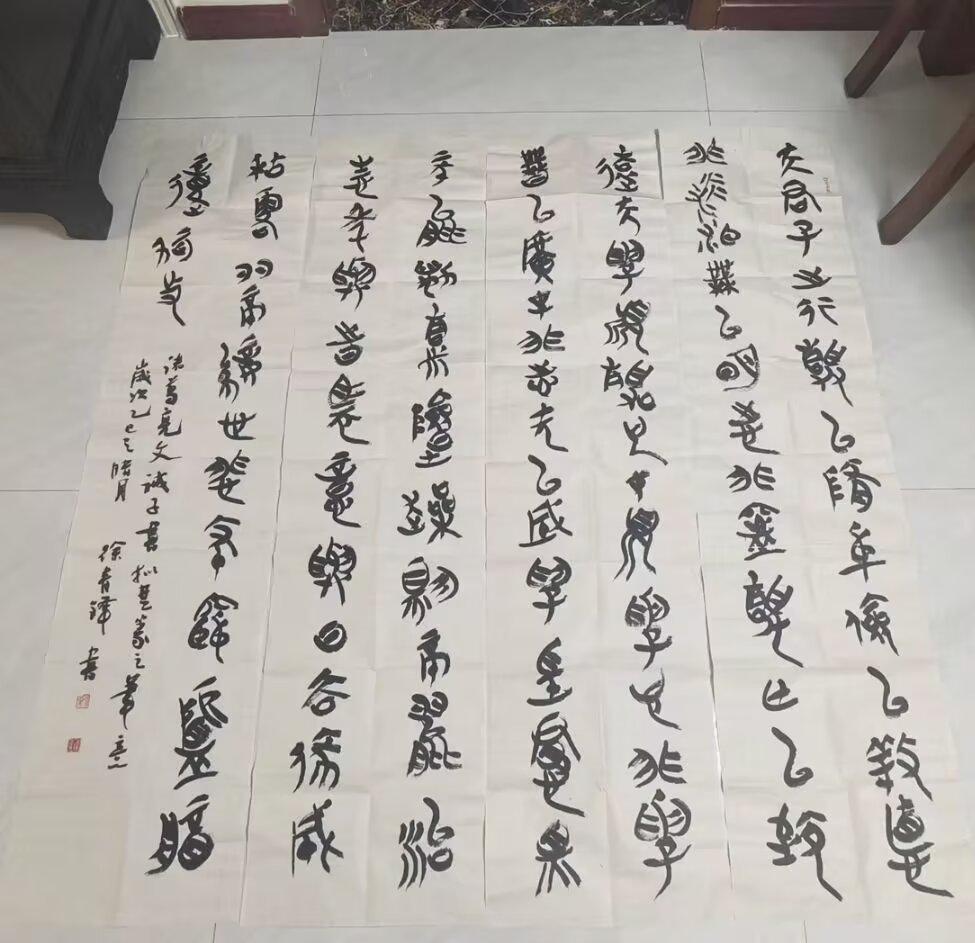 夫君子之行靜以脩身儉以養德
非淡泊無以明志非寧靜亡以致
遠夫學須靜也才須學也非學
無以廣才非志无以成學淫慢則
不能勵精險躁則不能治
性年與時馳意與日去遂成
枯落多不接世悲守窮廬將
復何及
诸葛亮文诫子書拟楚篆之筆意
歲次乙巳之腊月 徐青鋒書